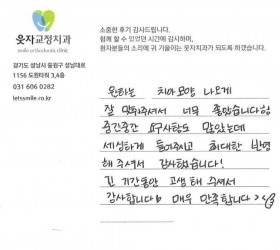 웃자교정치과
smile orthodontic clinic
경기도 성남시 중원구 성남대로
1156 도원타워 3,4층
031 606 0282
letssmile.co.kr
소중한 후기 감사드립니다.
함께 할 수 있었던 시간에 감사하며,
환자분들의 소리에 귀 기울이는 웃자치과가 되도록 하겠습니다.
원하는 치아모양 나오게
잘 맞춰주셔서 너무 좋았습니다
중간중간 요구사항도 많았는데
세심하게 들어주고 최대한 반영
해 주셔서 감사했습니다!
긴 기간동안 고생해 주셔서
감사합니다 매우 만족합니다